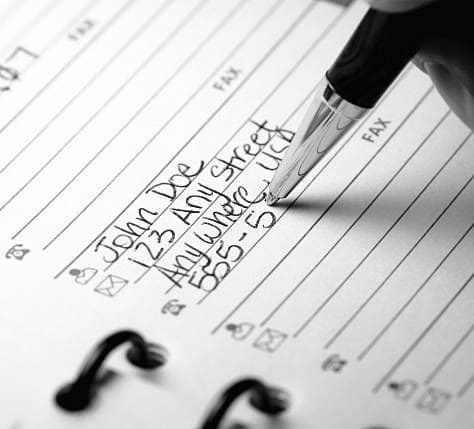 FAX
FAX
FAX
John Doe
123 Any Street
Anywhere, US
555-5